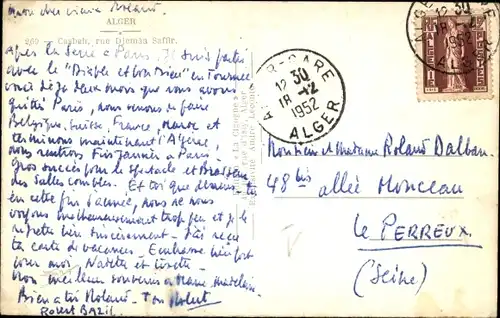 Mon cher vieux Roland.
ALGER
269 - Casbah, rue Djemâa Saffir.
Après la Série à Paris, je suis parti
avec le "Diable et bon Dieu" en tournée
voici déjà deux mois que nous avons
quitté Paris, nous venons de faire
Belgique, Suisse, France, Maroc et
terminons maintenant l'Algérie,
nous rentrons Fin Janvier à Paris.
Gros succès pour le spectacle et
des salles combles. Et toi que deviens tu
en cette fin d'année, nous ne nous
voyons malheureusement trop peu et je le
regrette bien sincèrement. J'ai reçu
ta carte de vacances. Embrasse bien fort
pour moi
Mon meilleur souvenir à Mame
Bien à toi Roland. Ton Robert
Robert BAZIL
ALGER-GARE
12 30
18-12
1952
ALGER
ALGER-GARE
12 30
18-12
1952
ALGER
ALGERIE
POSTES
Monsieur et Madame Roland Dalban
48 bis allée Monceau
le PERREUX
(Seine)